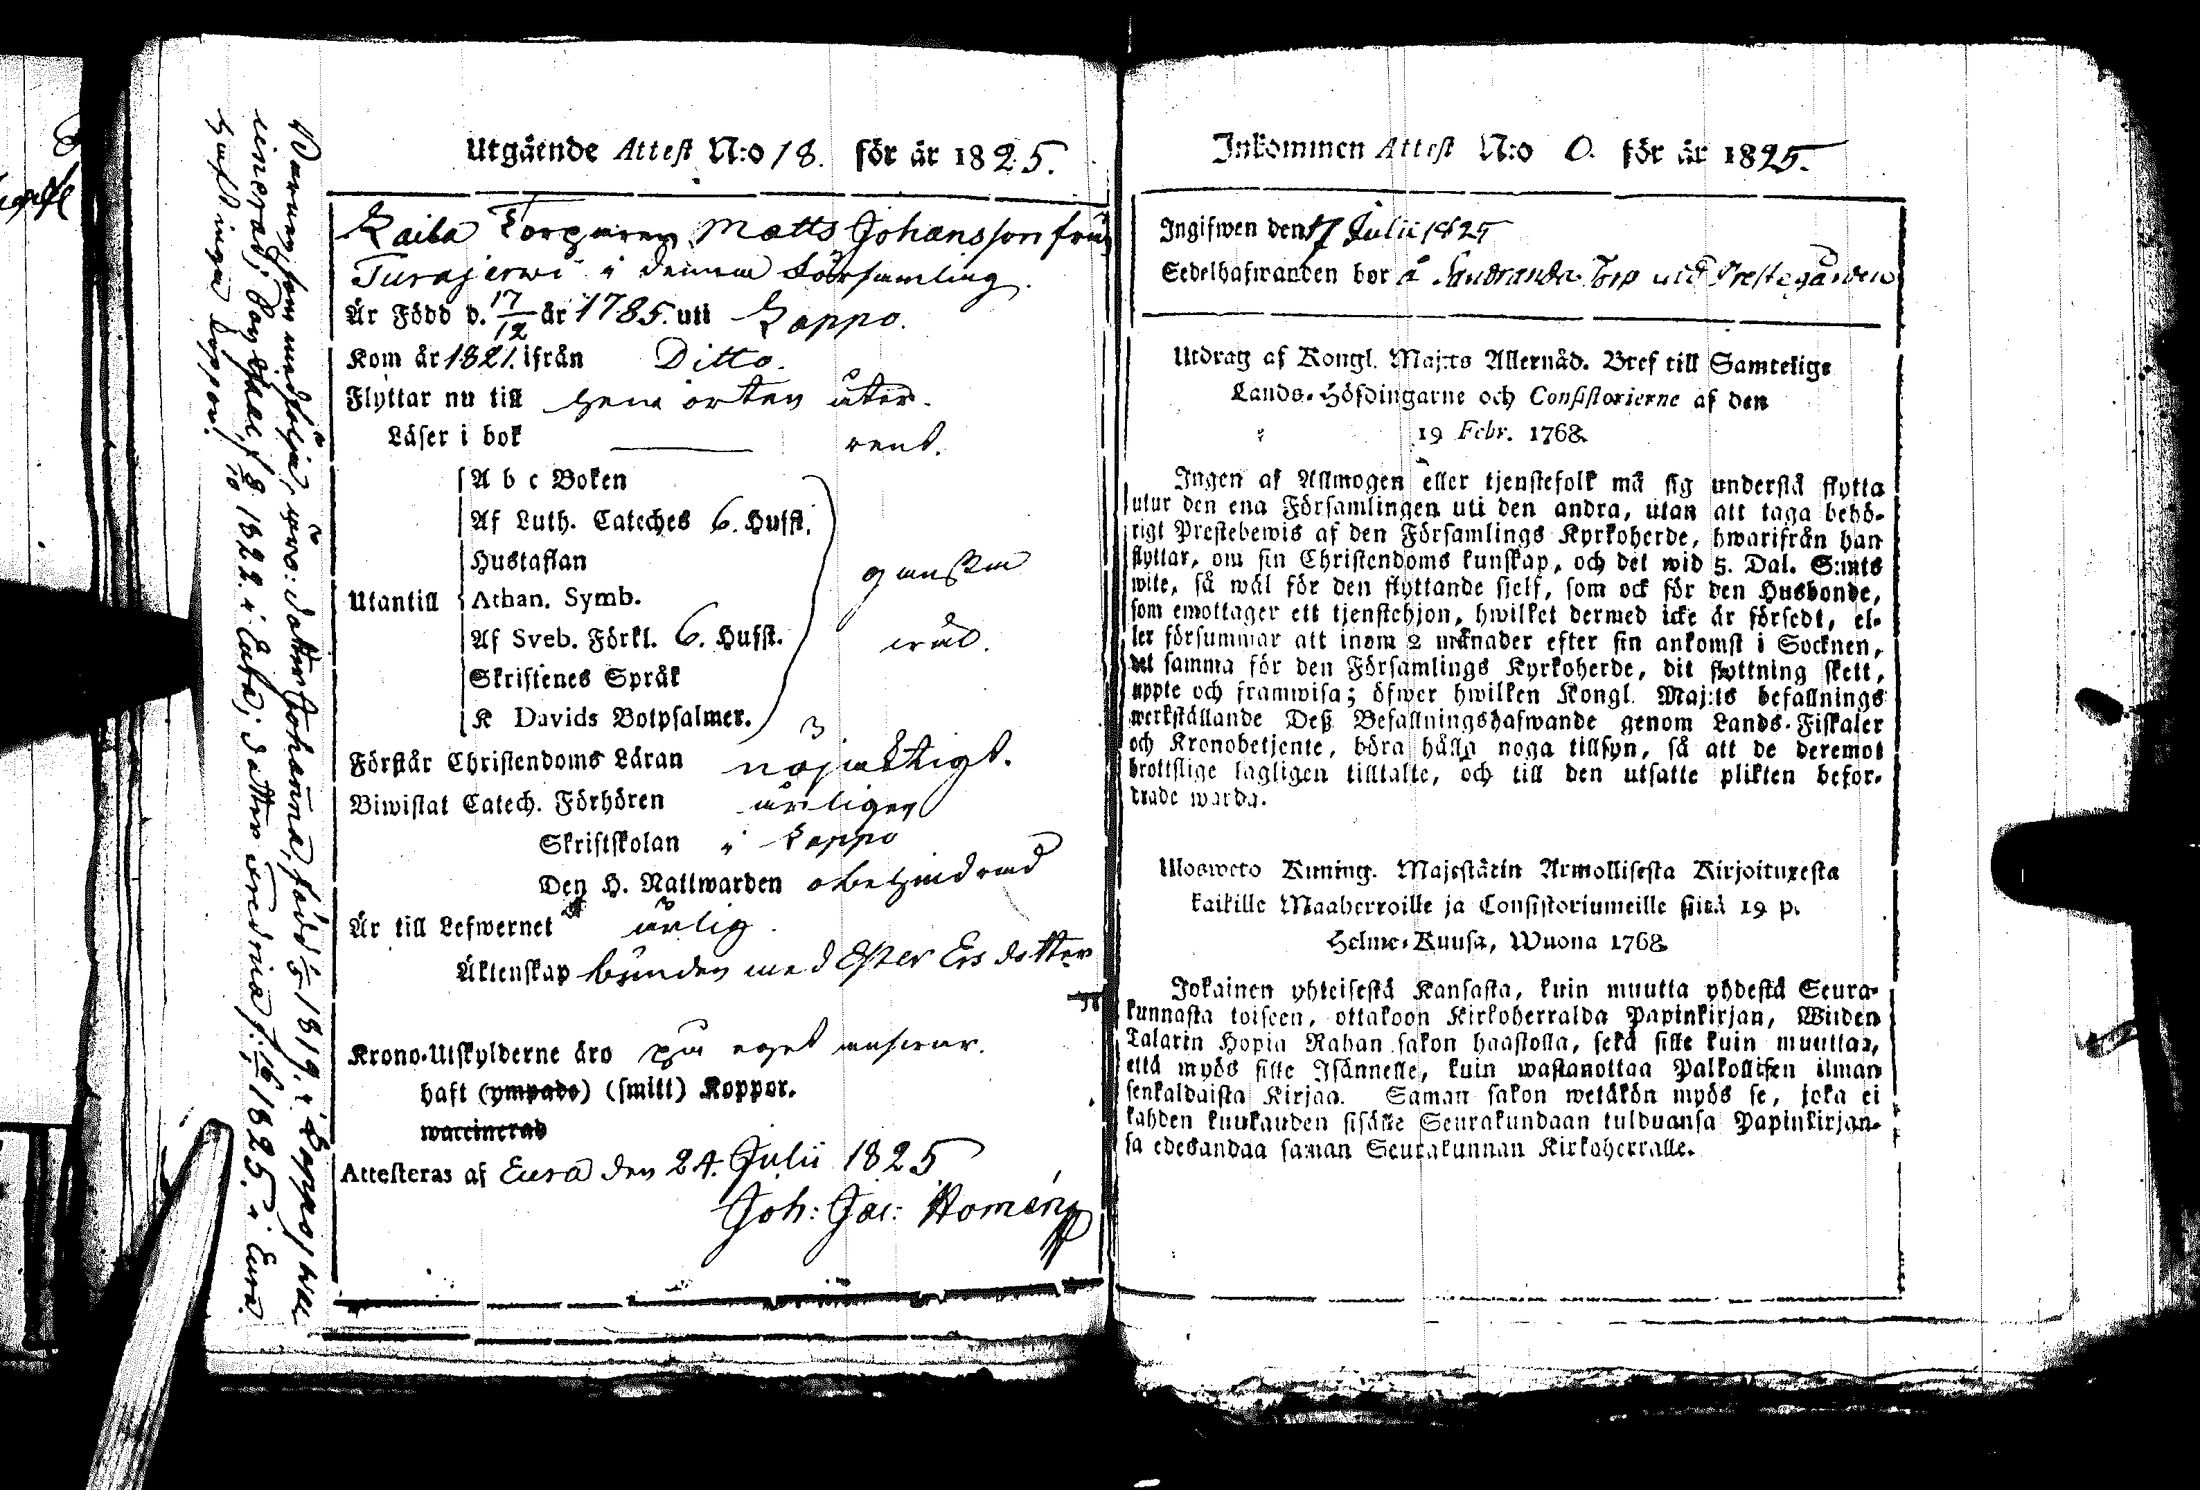 Utgående Attest N:o 18. för år 1825.
Torparen Matts Johansson från
Turajerwi i denna Församling.
Är Född d. 17/12 år 1785. uti Lappo.
Kom år 1821. ifrån Ditto.
Flyttar nu till hemorten åter.
Läser i bok rent.
A b c Boken
Af Luth. Cateches 6. Hufst.
Hustaflan
Utantill Athan. Symb.
ganska
Af Sveb. Förkl. 6. Hufst.
wäl.
Skriftenes Språk
K Davids Botpsalmer.
Förstår Christendoms Läran nöjaktigt.
Biwistat Catech. Förhören årligen
Skriftskolan i Lappo
Den H. Nattwarden obehindrad
Är till Lefwernet ärlig.
Äktenskap bunden med Ester Ersdotter
Krono-Utskylderne äro på eget answar.
haft (ympade) (smitt) Koppor.
waccinerad
Attesteras af Eura den 24. Julii 1825
Joh: Jac: Homén
född 1819. i Lappo, wac
cinerad; 1822. i dotter 1825. i Eura
haft inga koppor.
Inkommen Attest N:o 0. för år 1825.
Ingifwen den 17 Julii 1825
Sedelhafwanden bor å Torp uti Prestegården
Utdrag af Kongl. Maj:ts Allernåd. Bref till Samtelige
Lands-Höfdingarne och Consistorierne af den
19 Febr. 1768.
Ingen af Allmogen eller tjenstefolk må sig understå flytta
utur den ena Församlingen uti den andra, utan att taga behö-
rigt Prestebewis af den Församlings Kyrkoherde, hwarifrån han
flyttar, om sin Christendoms kunskap, och det wid 5. Dal. S:mts
wite, så wäl för den flyttande sielf, som ock för den Husbonde,
som emottager ett tjenstehjon, hwilket dermed icke är försedt, el-
ler försummar att inom 2 månader efter sin ankomst i Socknen,
det samma för den Församlings Kyrkoherde, dit flyttning skett,
uppte och framwisa; öfwer hwilken Kongl. Maj:ts befallnings
werkställande Deß Befallningshafwande genom Lands-Fiskaler
och Kronobetjente, böra hålla noga tillsyn, så att de deremot
brottslige lagligen tilltalte, och till den utsatte plikten befor-
drade warda.
Ulosweto Kuning. Majestätin Armollisesta Kirjoituxesta
kaikille Maaherroille ja Consistoriumeille siitä 19 p.
Helme-Kuusa, Wuona 1768.
Jokainen yhteisestä Kansasta, kuin muutta yhdestä Seura-
kunnasta toiseen, ottakoon Kirkoherralda Papinkirjan, Wiiden
Talarin Hopia Rahan sakon haastolla, sekä sille kuin muuttaa,
että myös sille Isännelle, kuin wastanottaa Palkollisen ilman
senkaldaista Kirjaa. Saman sakon wetäkön myös se, joka ei
kahden kuukauden sisälle Seurakundaan tulduansa Papinkirjan-
sa edesandaa saman Seurakunnan Kirkoherralle.